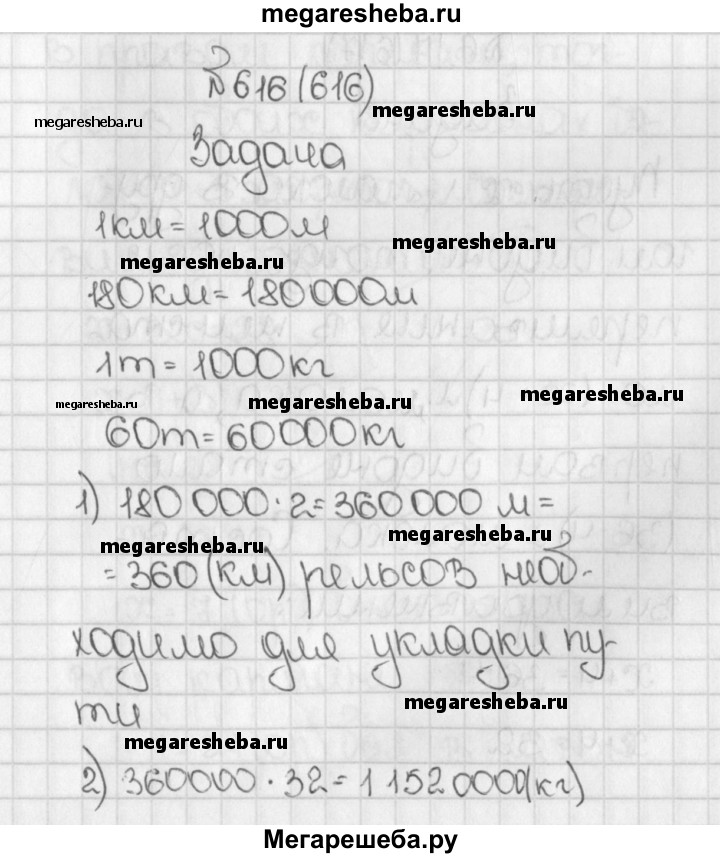 megaresheba.ru
№ 616 (616)
megaresheba.ru
megaresheba.ru
Задача
1км = 1000м
megaresheba.ru
megaresheba.ru
180км = 180000м
1т = 1000кг
megaresheba.ru
megaresheba.ru
megaresheba.ru
60т = 60000кг
1) 180 000 · 2 = 360 000 м =
megaresheba.ru
megaresheba.ru
= 360 (км) рельсов необ-
ходимо для укладки пу-
ти
megaresheba.ru
megaresheba.ru
2) 360000 · 32 = 11520000(кг)
Мегарешеба.ру